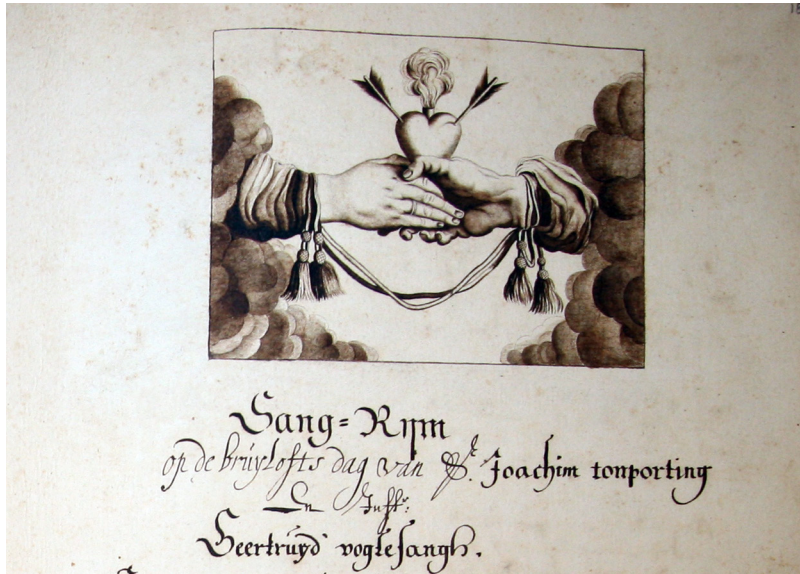 Sang=Rijm
op de bruylofts dag van Sr. Joachim tonporting
En Juffr:
Geertruyd voglesangh.